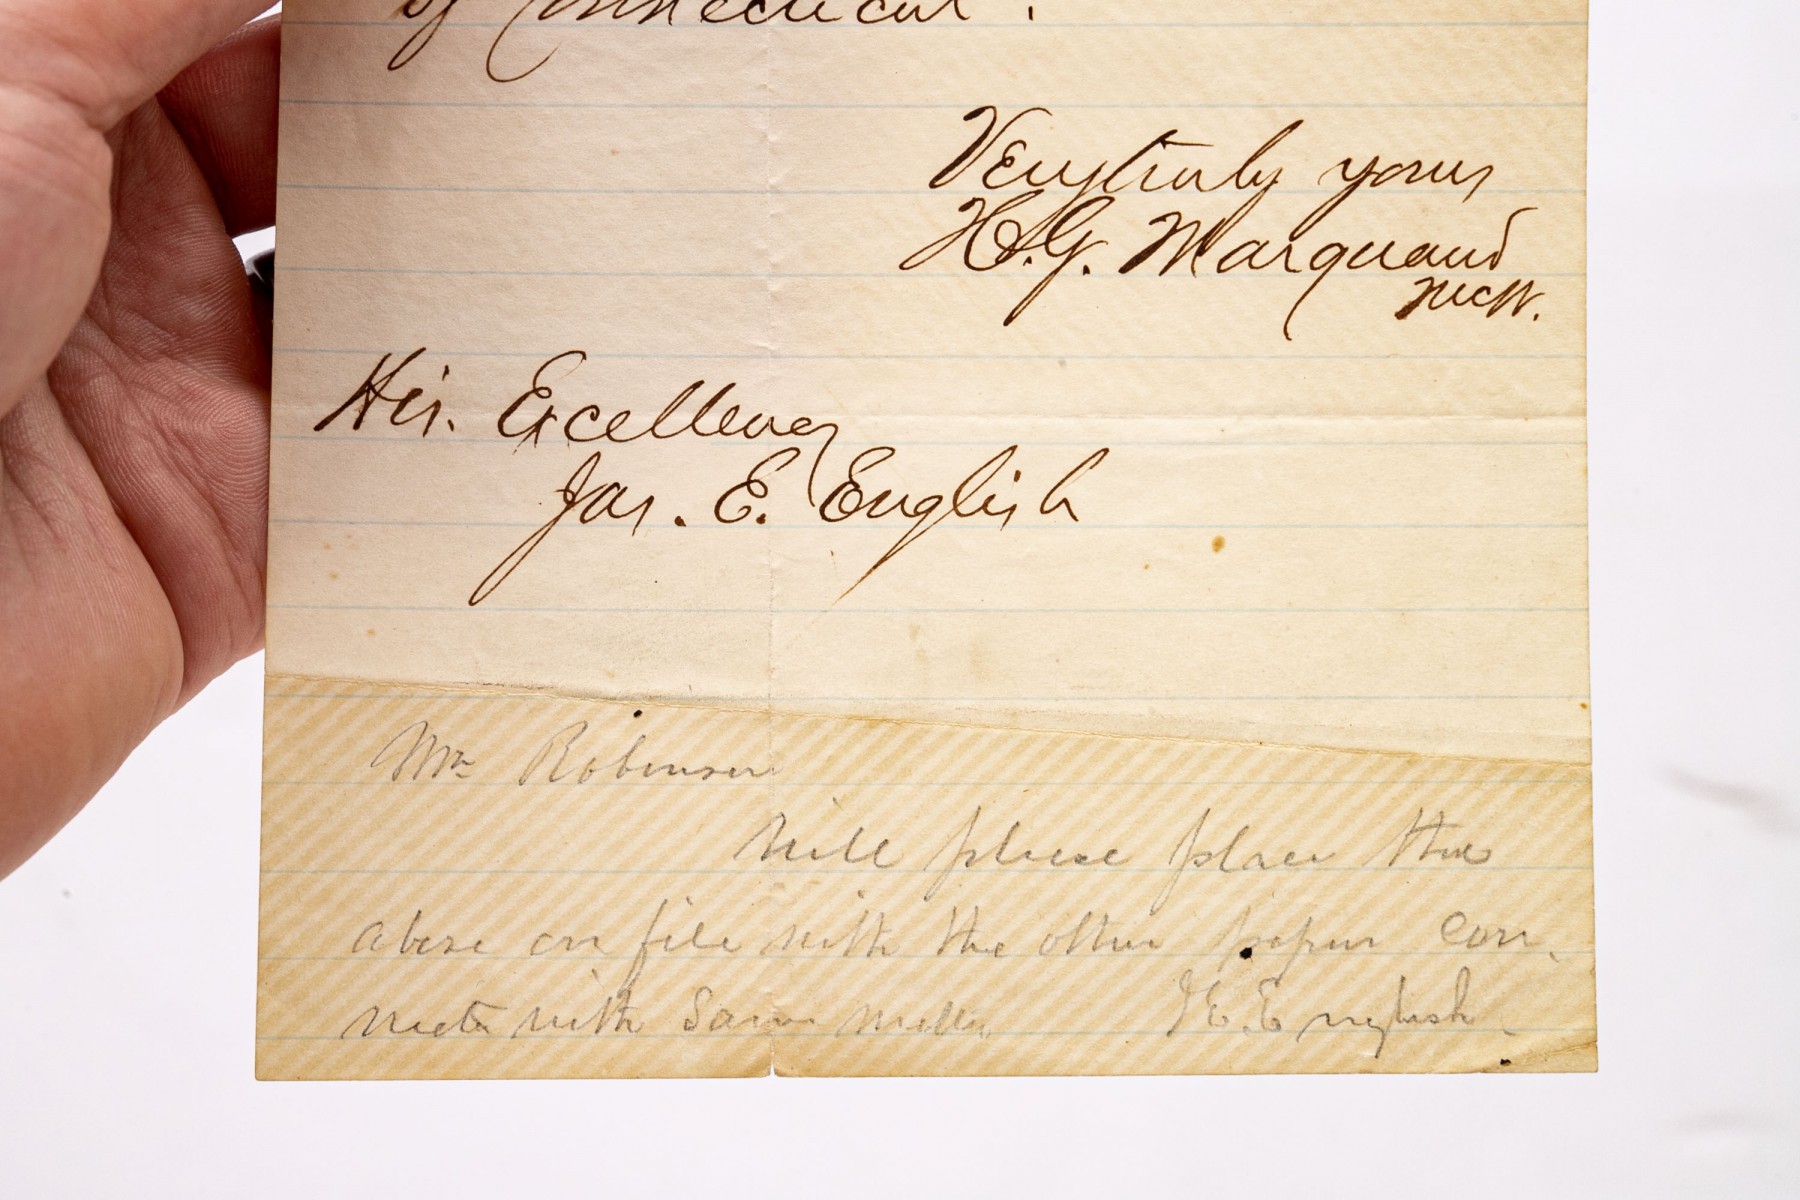 of Connecticut.
Very truly yours
H. G. Marquand
His. Excellency
Jas. E. English
Mr Robinson
Will please place the
above on file with the other papers con-
nected with same matter.   J E. English